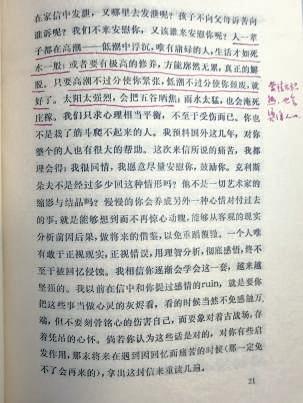 在家信中发泄，又哪里去发泄呢？孩子不向父母诉苦向
谁诉呢？我们不来安慰你，又该谁来安慰你呢？人一辈
子都在高潮——低潮中浮沉，唯有庸碌的人，生活才如死
水一般；或者要有极高的修养，方能廓然无累，真正的解
脱。只要高潮不过分使你紧张，低潮不过分使你颓废，就
好了。太阳太强烈，会把五谷晒焦；雨水太猛，也会淹死
庄稼。我们只求心理相当平衡，不至于受伤而已。你也
不是栽了筋斗爬不起来的人。我预料国外这几年，对你
整个的人也有很大的帮助。这次来信所说的痛苦，我都
理会得；我很同情，我愿意尽量安慰你，鼓励你。克利斯
朵夫不是经过多少回这种情形吗？他不是一切艺术家的
缩影与结晶吗？慢慢的你会养成另外一种心情对付过去
的事：就是能够想到而不再惊心动魄，能够从客观的现实
分析前因后果，做将来的借鉴，以免重蹈覆辙。一个人唯
有敢于正视现实，正视错误，用理智分析，彻底感悟，终不
至于被回忆侵蚀。我相信你逐渐会学会这一套，越来越
坚强的。我以前在信中和你提过感情的ruin，就是要你
把这些事当做心灵的灰烬看，看的时候当然不免感触万
端，但不要刻骨铭心的伤害自己，而要象对着古战场，存
着凭吊的心怀。倘若你认为这些话是对的，对你有些启
发作用，那末将来在遇到因回忆而痛苦的时候（那一定免
不了会再来的），拿出这封信来重读几遍。
21